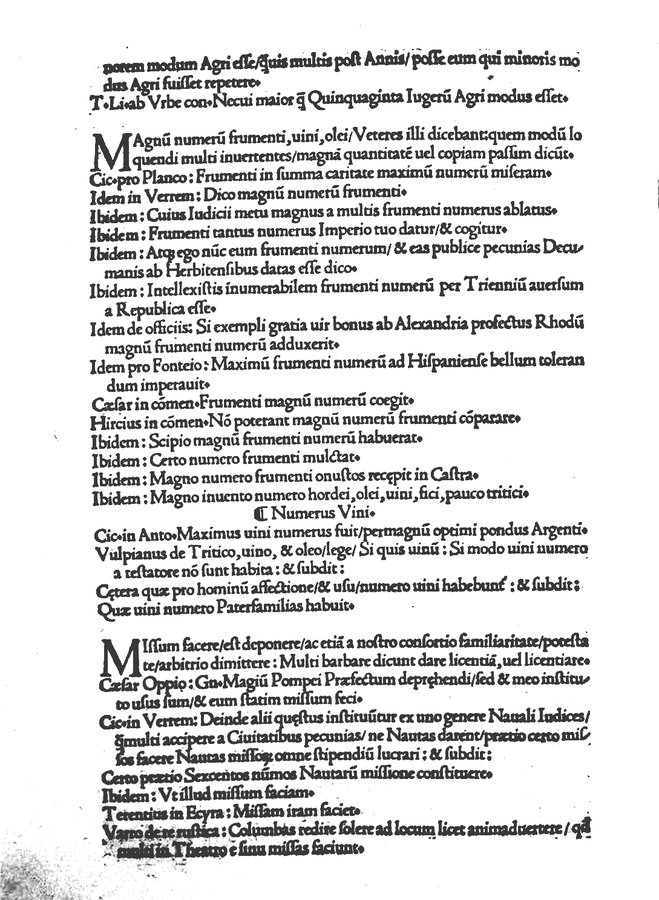 norem modum Agri esse/ꝗuis multis post Annis/ posse eum qui minoris mo
dus Agri fuisset repetere.
T.Li.ab Vrbe con.Necui maior ꝗ̃ Quinquaginta Iugerũ Agri modus esset.
MAgnũ numerũ frumenti,uini,olei/Veteres illi dicebant:quem modũ lo
quendi multi inuertentes/magnã quantitatẽ uel copiam passim dicũt.
Cic.pro Planco : Frumenti in summa caritate maximũ numerũ miseram.
Idem in Verrem : Dico magnũ numerũ frumenti.
Ibidem : Cuius Iudicii metu magnus a multis frumenti numerus ablatus.
Ibidem : Frumenti tantus numerus Imperio tuo datur/& cogitur.
Ibidem : Atqꝫ ego nũc eum frumenti numerum/ & eas publice pecunias Decu-
manis ab Herbitensibus datas esse dico.
Ibidem : Intellexistis inumerabilem frumenti numerũ per Trienniũ auersum
a Republica esse.
Idem de officiis: Si exempli gratia uir bonus ab Alexandria profectus Rhodũ
magnũ frumenti numerũ adduxerit.
Idem pro Fonteio : Maximũ frumenti numerũ ad Hispaniense bellum toleran
dum imperauit.
Cæsar in cõmen.Frumenti magnũ numerũ coegit.
Hircius in cõmen.Nõ poterant magnũ numerũ frumenti cõparare.
Ibidem : Scipio magnũ frumenti numerũ habuerat.
Ibidem : Certo numero frumenti mulctat.
Ibidem : Magno numero frumenti onustos recępit in Castra.
Ibidem : Magno inuento numero hordei,olei,uini,fici,pauco tritici.
⸿ Numerus Vini.
Cic.in Anto.Maximus uini numerus fuit/permagnũ optimi pondus Argenti.
Vulpianus de Tritico,uino, & oleo/lege/ Si quis uinũ : Si modo uini numero
a testatore nõ sunt habita : & subdit :
Cętera quæ pro hominũ affectione/& usu/numero uini habebunt̃ : & subdit :
Quæ uini numero Paterfamilias habuit.
MIssum facere/est deponere/ac etiã a nostro consortio familiaritate/potesta
te/arbitrio dimittere : Multi barbare dicunt dare licentiã, uel licentiare.
Cæsar Oppio : Gn.Magiũ Pompei Præfectum depręhendi/sed & meo institu-
to usus sum/& eum statim missum feci.
Cic.in Verrem: Deinde alii quęstus instituũtur ex uno genere Nauali Iudices/
ꝗmulti accipere a Ciuitatibus pecunias/ ne Nautas darent/prætio certo mis-
sos facere Nautas missoꝝ omne stipendiũ lucrari : & subdit :
Certo prætio Sexcentos nũmos Nautarũ missione constituere.
Ibidem : Vt illud missum faciam.
Terentius in Ecyra : Missam iram faciet.
Varro de re rustica : Columbas redire solere ad locum licet animaduertere / qđ
multi in Theatro e sinu missas faciunt.